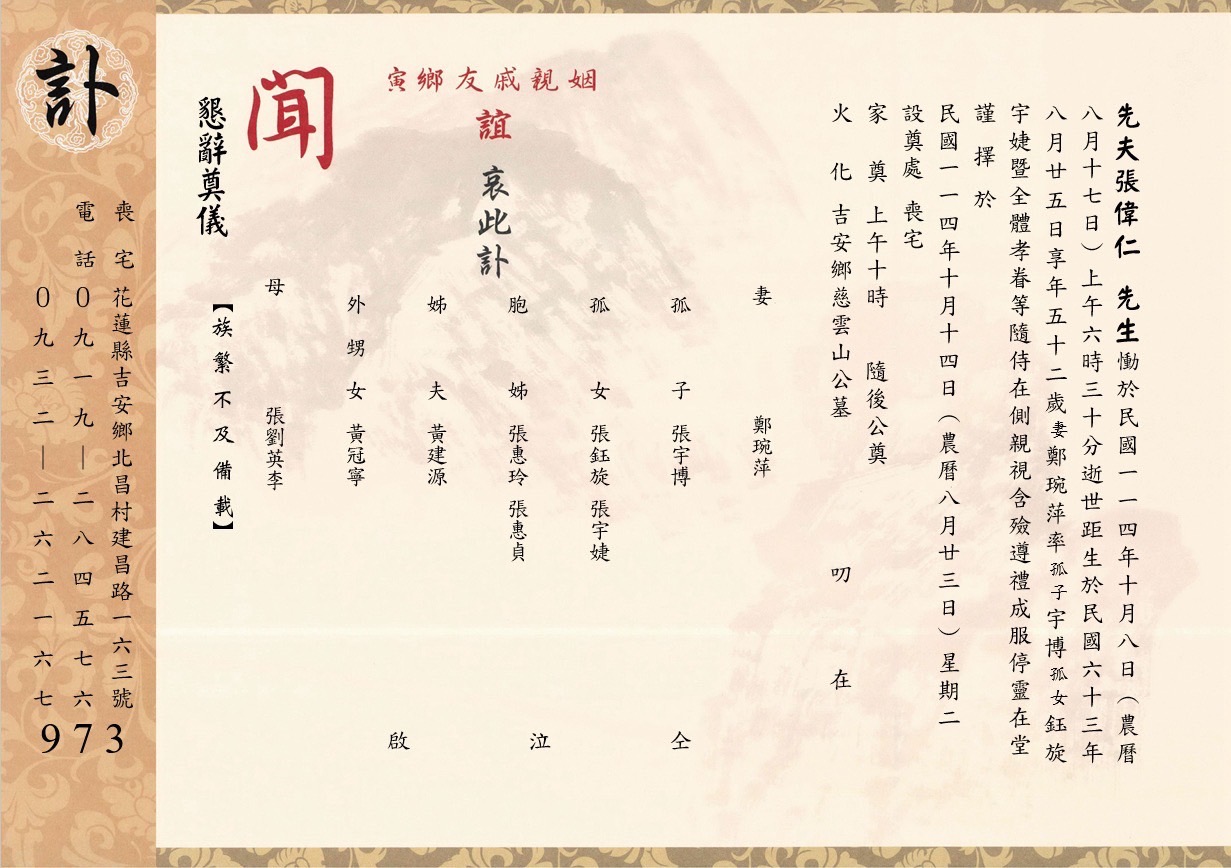 先夫張偉仁 先生慟於民國一一四年十月八日（農曆
八月十七日）上午六時三十分逝世距生於民國六十三年
八月廿五日享年五十二歲妻鄭琬萍率孤子宇博孤女鈺旋
宇婕暨全體孝眷等隨侍在側親視含殮遵禮成服停靈在堂
謹擇於
民國一一四年十月十四日（農曆八月廿三日）星期二
設奠處 喪宅
家奠 上午十時 隨後公奠
火化 吉安鄉慈雲山公墓 叨在
姻親戚友鄉寅
誼
哀此訃
聞
懇辭奠儀
妻 鄭琬萍
孤子 張宇博
孤女 張鈺旋 張宇婕
胞姊 張惠玲 張惠貞
姊夫 黃建源
外甥女 黃冠寧
母 張劉英李
【族繁不及備載】
仝泣啟
訃
喪宅 花蓮縣吉安鄉北昌村建昌路一六三號
電話 0九一九—二八四五七六
0九三二—二六二一六七
973